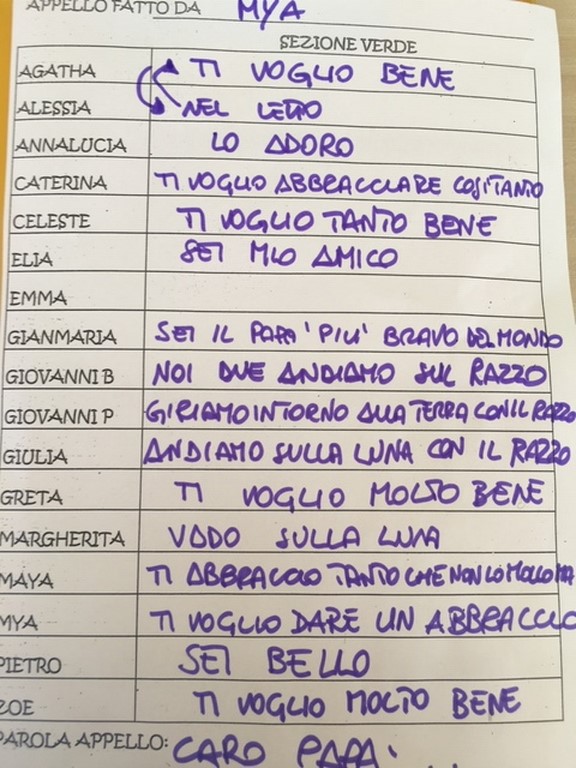 APPELLO FATTO DA MYA
SEZIONE VERDE
AGATHA TI VOGLIO BENE
ALESSIA NEL LETTO
ANNALUCIA LO ADORO
CATERINA TI VOGLIO ABBRACCIARE COSÌ TANTO
CELESTE TI VOGLIO TANTO BENE
ELIA SEI MIO AMICO
EMMA
GIANMARIA SEI IL PAPA' PIU' BRAVO DEL MONDO
GIOVANNI B NOI DUE ANDIAMO SUL RAZZO
GIOVANNI P GIRIAMO INTORNO ALLA TERRA CON IL RAZZO
GIULIA ANDIAMO SULLA LUNA CON IL RAZZO
GRETA TI VOGLIO MOLTO BENE
MARGHERITA VADO SULLA LUNA
MAYA TI ABBRACCIO TANTO CHE NON LO MOLLO MA
MYA TI VOGLIO DARE UN ABBRACCIO
PIETRO SEI BELLO
ZOE TI VOGLIO MOLTO BENE
PAROLA APPELLO: CARO PAPA' ...